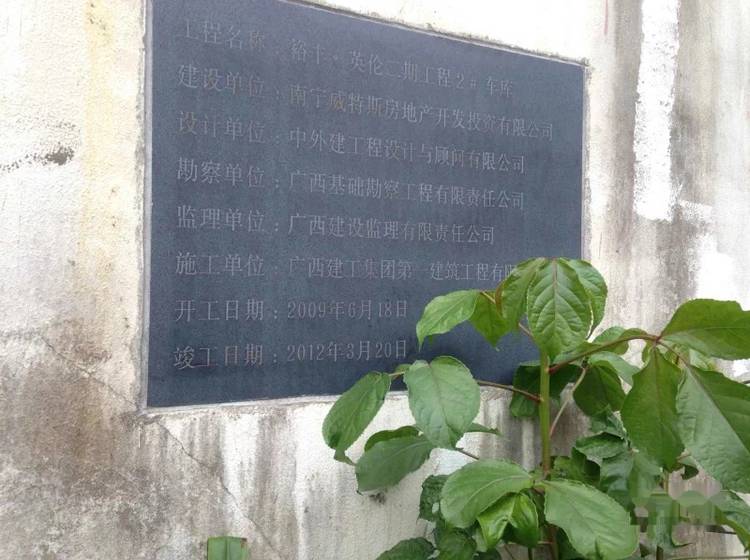 工程名称：裕丰·英伦二期工程2#车库
建设单位：南宁威特斯房地产开发投资有限公司
设计单位：中外建工程设计与顾问有限公司
勘察单位：广西基础勘察工程有限责任公司
监理单位：广西建设监理有限责任公司
施工单位：广西建工集团第一建筑工程有限
开工日期：2009年6月18日
竣工日期：2012年3月20日